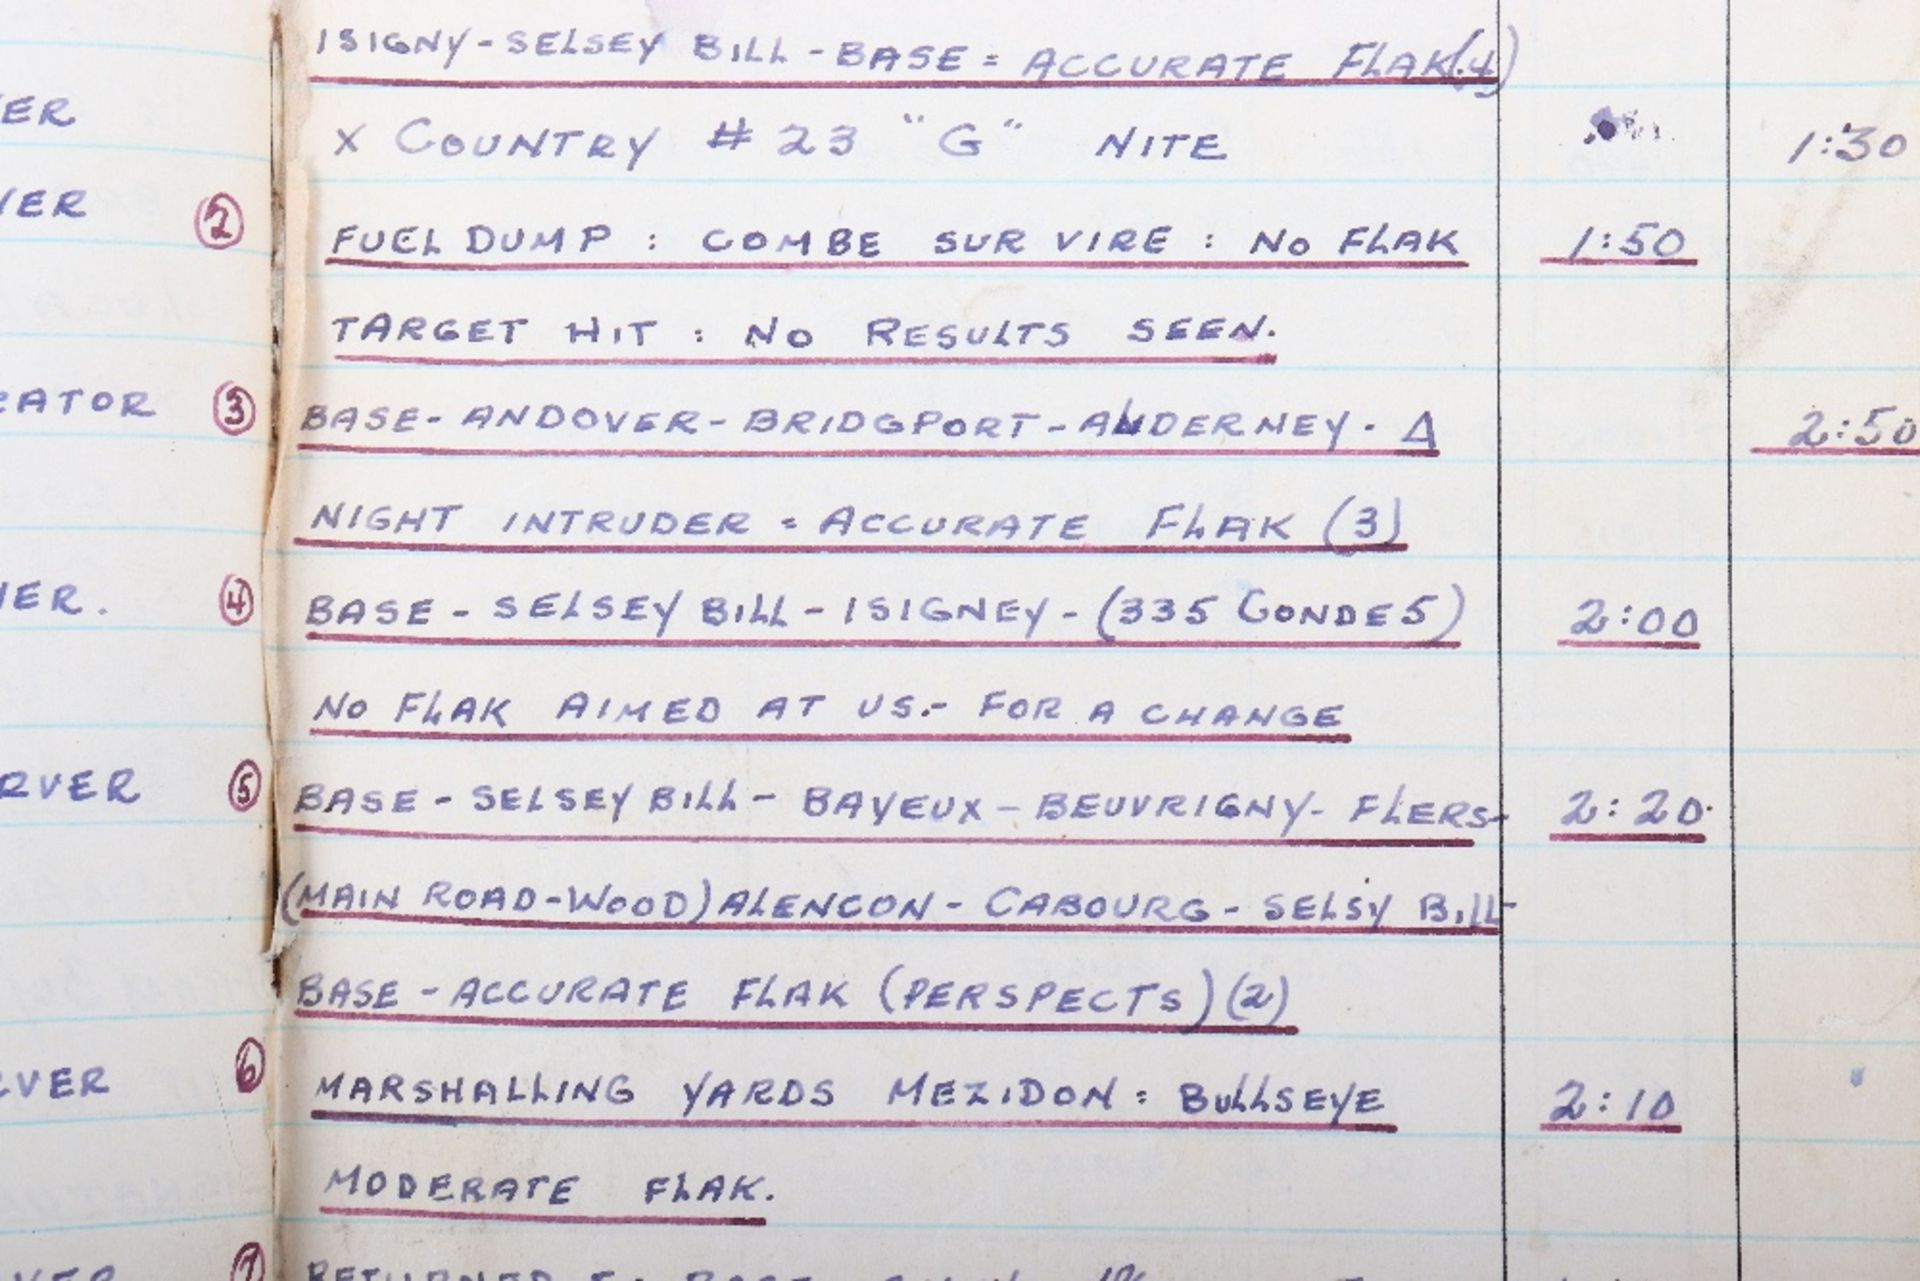 ISIGNY-SELSEY BILL-BASE = ACCURATE FLAK(4)
ER X COUNTRY # 23 "G" NITE 1:30
VER ② FUEL DUMP : COMBE SUR VIRE : NO FLAK 1:50
TARGET HIT : NO RESULTS SEEN.
RATOR ③ BASE-ANDOVER-BRIDGPORT-ALDERNEY. Δ 2:50
NIGHT INTRUDER = ACCURATE FLAK (3)
VER. ④ BASE - SELSEY BILL - ISIGNEY - (335 CONDE5) 2:00
NO FLAK AIMED AT US.- FOR A CHANGE
RVER ⑤ BASE - SELSEY BILL - BAYEUX - BEUVRIGNY- FLERS- 2:20
(MAIN ROAD-WOOD) ALENCON - CABOURG - SELSY BILL-
BASE - ACCURATE FLAK (PERSPECTS) (2)
RVER ⑥ MARSHALLING YARDS MEZIDON : BULLSEYE 2:10
MODERATE FLAK.
VER ⑦ RETURNED